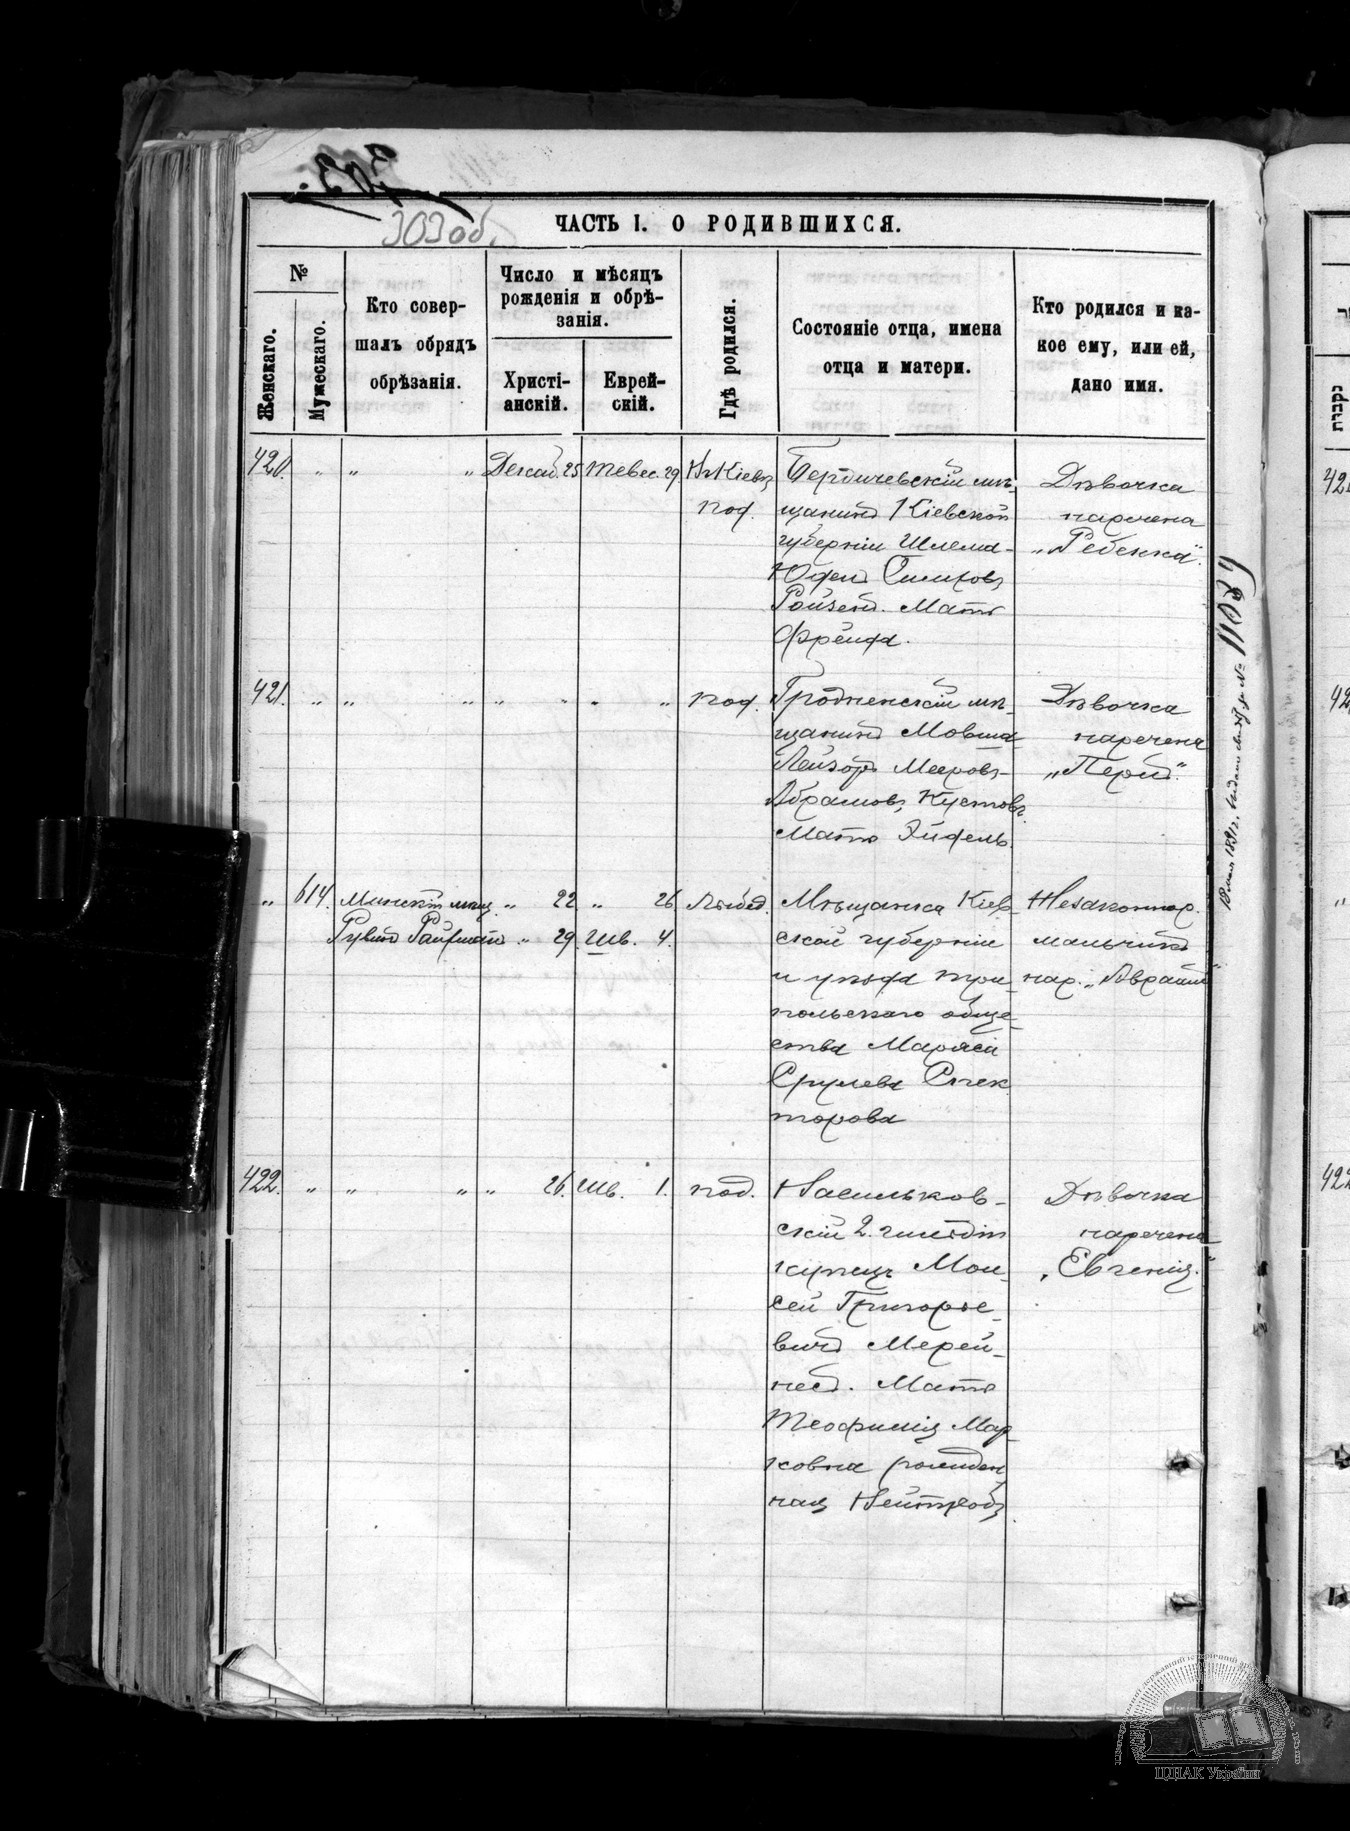 303 об.
ЧАСТЬ I. О РОДИВШИХСЯ.
№
Женскаго.
Мужескаго.
Кто совер-
шалъ обрядъ
обрѣзанія.
Число и мѣсяцъ
рожденія и обрѣ-
занія.
Христі-
анскій.
Еврей-
скій.
Гдѣ родился.
Состояніе отца, имена
отца и матери.
Кто родился и ка-
кое ему, или ей,
дано имя.
420. " " " Декаб. 25 Тевес. 29 Въ Кіевѣ
под.
Бердичевскій мѣ-
щанинъ Кіевской
губерніи Шлема-
Юдель
Ройзенъ. Мать
Фрейда.
Дѣвочка
наречена
„Ребекка".
421. " " " " " " " под.
Гродненскій мѣ-
щанинъ Мовша-
Лейзоръ Мееровъ-
Абрамовъ
Мать Эйдель
Дѣвочка
наречена
„Перль".
" 614. Минскій мѣщ. " 22 " 26 Лыбед.
Рувинъ Райхман " 29 Шв. 4.
Мѣщанка Кіев-
ской губерніи
и уѣзда Три-
польскаго обще-
ства Маріася
Срулева Спек
торова
Незаконнор.
мальчикъ
нар. „Авраамъ"
422. " " " " 26. Шв. 1. под.
Васильков-
скій 2. гильдіи
купецъ Мои-
сей Григорье-
вичъ Мерей-
несъ. Мать
Теофилія Мар-
ковна рожден-
ная
Дѣвочка
наречена
„Евгенія."
18 мая 1891 г. выдано свид. за № 11089
ЦДІАК України